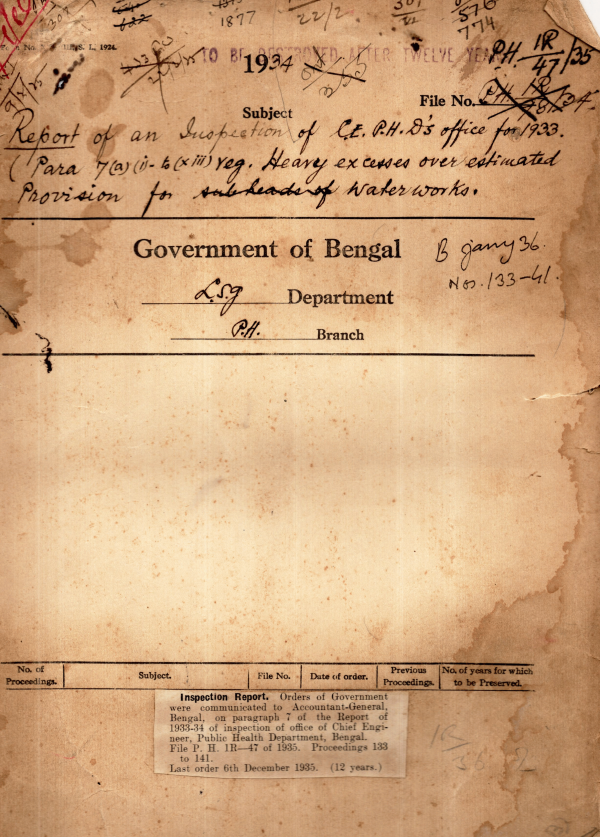 1877
22/2
576
774
TO BE DESTROYED AFTER TWELVE YEARS
P.H. 1R/47/35
1934
Subject
File No.
Report of an Inspection of C.E. P.H.D's office for 1933.
(Para 7(a)(i)-to(xiii) reg. Heavy excesses over estimated
Provision for sub heads of Water works.
Government of Bengal
B Jany 36.
L.S.G Department
Nos. 133-41.
P.H. Branch
No. of Proceedings.
Subject.
File No.
Date of order.
Previous Proceedings.
No. of years for which to be Preserved.
Inspection Report. Orders of Government
were communicated to Accountant-General,
Bengal, on paragraph 7 of the Report of
1933-34 of inspection of office of Chief Engi-
neer, Public Health Department, Bengal.
File P. H. 1R—47 of 1935. Proceedings 133
to 141.
Last order 6th December 1935. (12 years.)